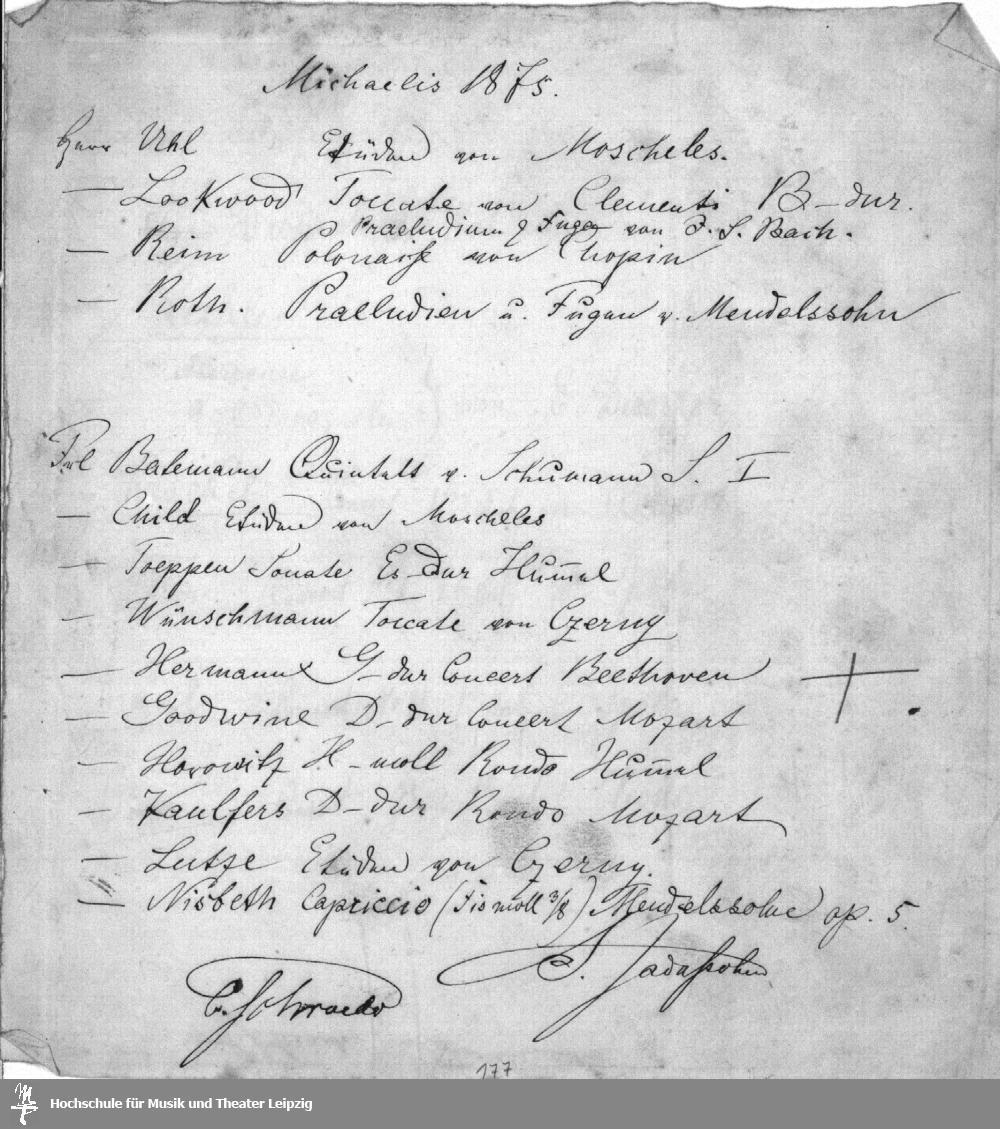 Michaelis 1875.
Herr Uhl Etüden von Moscheles.
— Lookwood Toccate von Clementi B-dur.
Praeludium & Fuge von J. S. Bach.
— Reim Polonaise von Chopin
— Roth. Praeludien u. Fugen v. Mendelssohn
Frl Batemann Quintett v. Schumann S. I
— Child Etüden von Moscheles
— Toeppen Sonate Es-dur Hum̅el
— Wünschmann Toccate von Czerny
— Hermann G-dur Concert Beethoven
— Goodwine D-dur Concert Mozart
— Horowitz H-moll Rondo Hum̅el
— Kaulfers D-dur Rondo Mozart
— Lutze Etüden von Czerny.
— Nisbeth Capriccio (Fis moll 3/8) Mendelssohn op. 5.
S. Jadassohn
C. Schroeder
177
Hochschule für Musik und Theater Leipzig